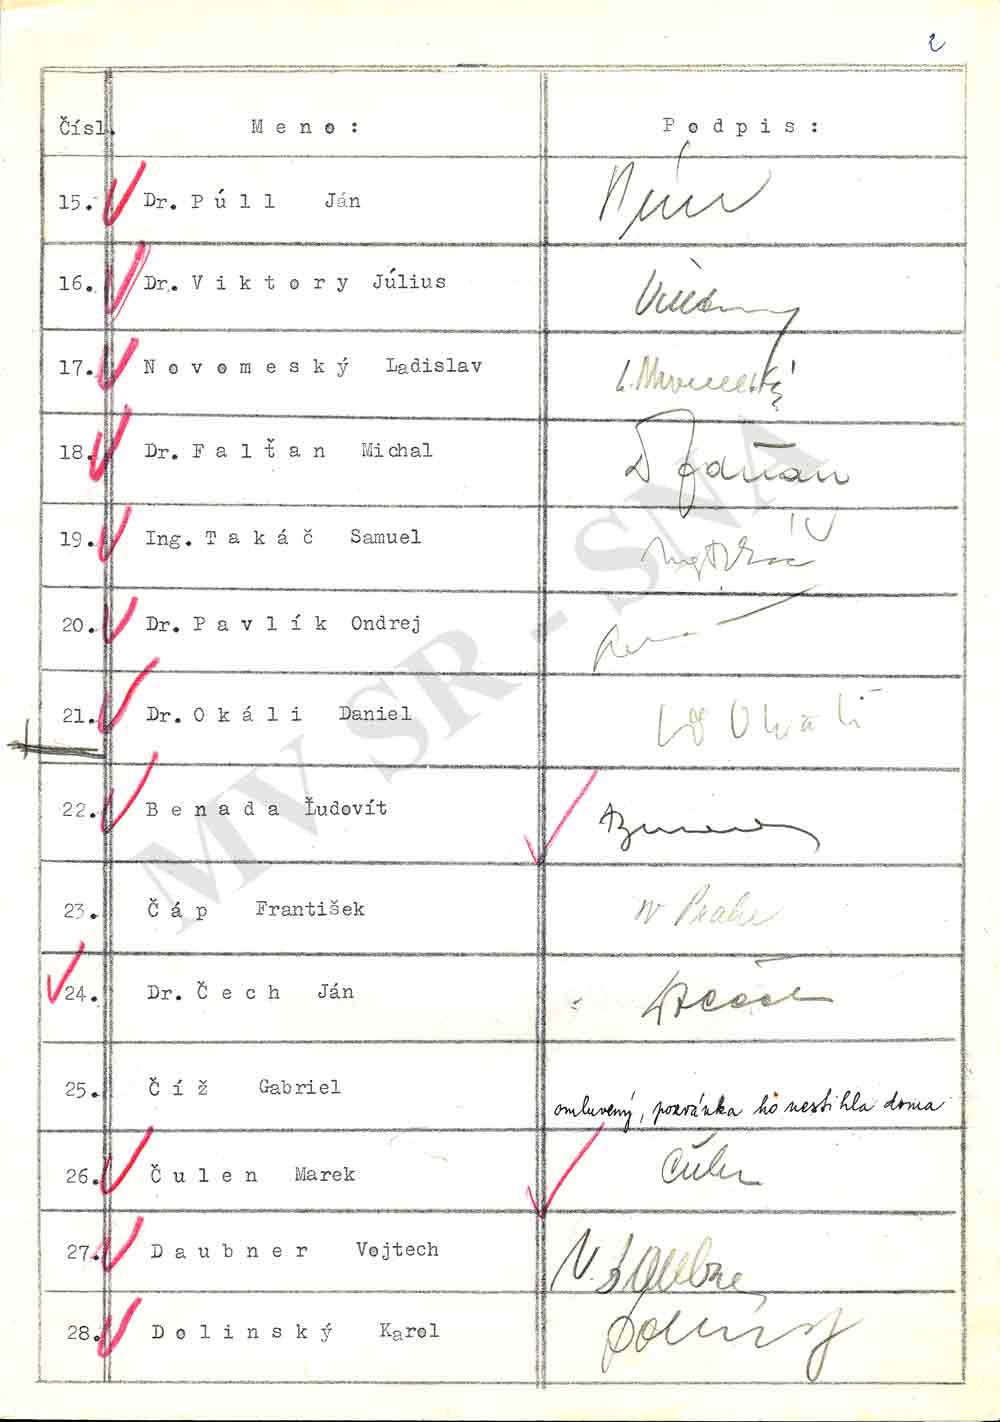 2
Čísl. Meno: Podpis:
15. Dr. Púll Ján
16. Dr. Viktory Július
17. Novomeský Ladislav L. Novomeský
18. Dr. Falťan Michal D Falťan
19. Ing. Takáč Samuel Ing Takáč
20. Dr. Pavlík Ondrej
21. Dr. Okáli Daniel Okáli
22. Benada Ľudovít
23. Čáp František v Prahe
24. Dr. Čech Ján
25. Číž Gabriel omluvený, pozvánka ho nestihla doma
26. Čulen Marek Čulen
27. Daubner Vojtech V. Daubner
28. Dolinský Karol Dolinský
MV SR - SNA